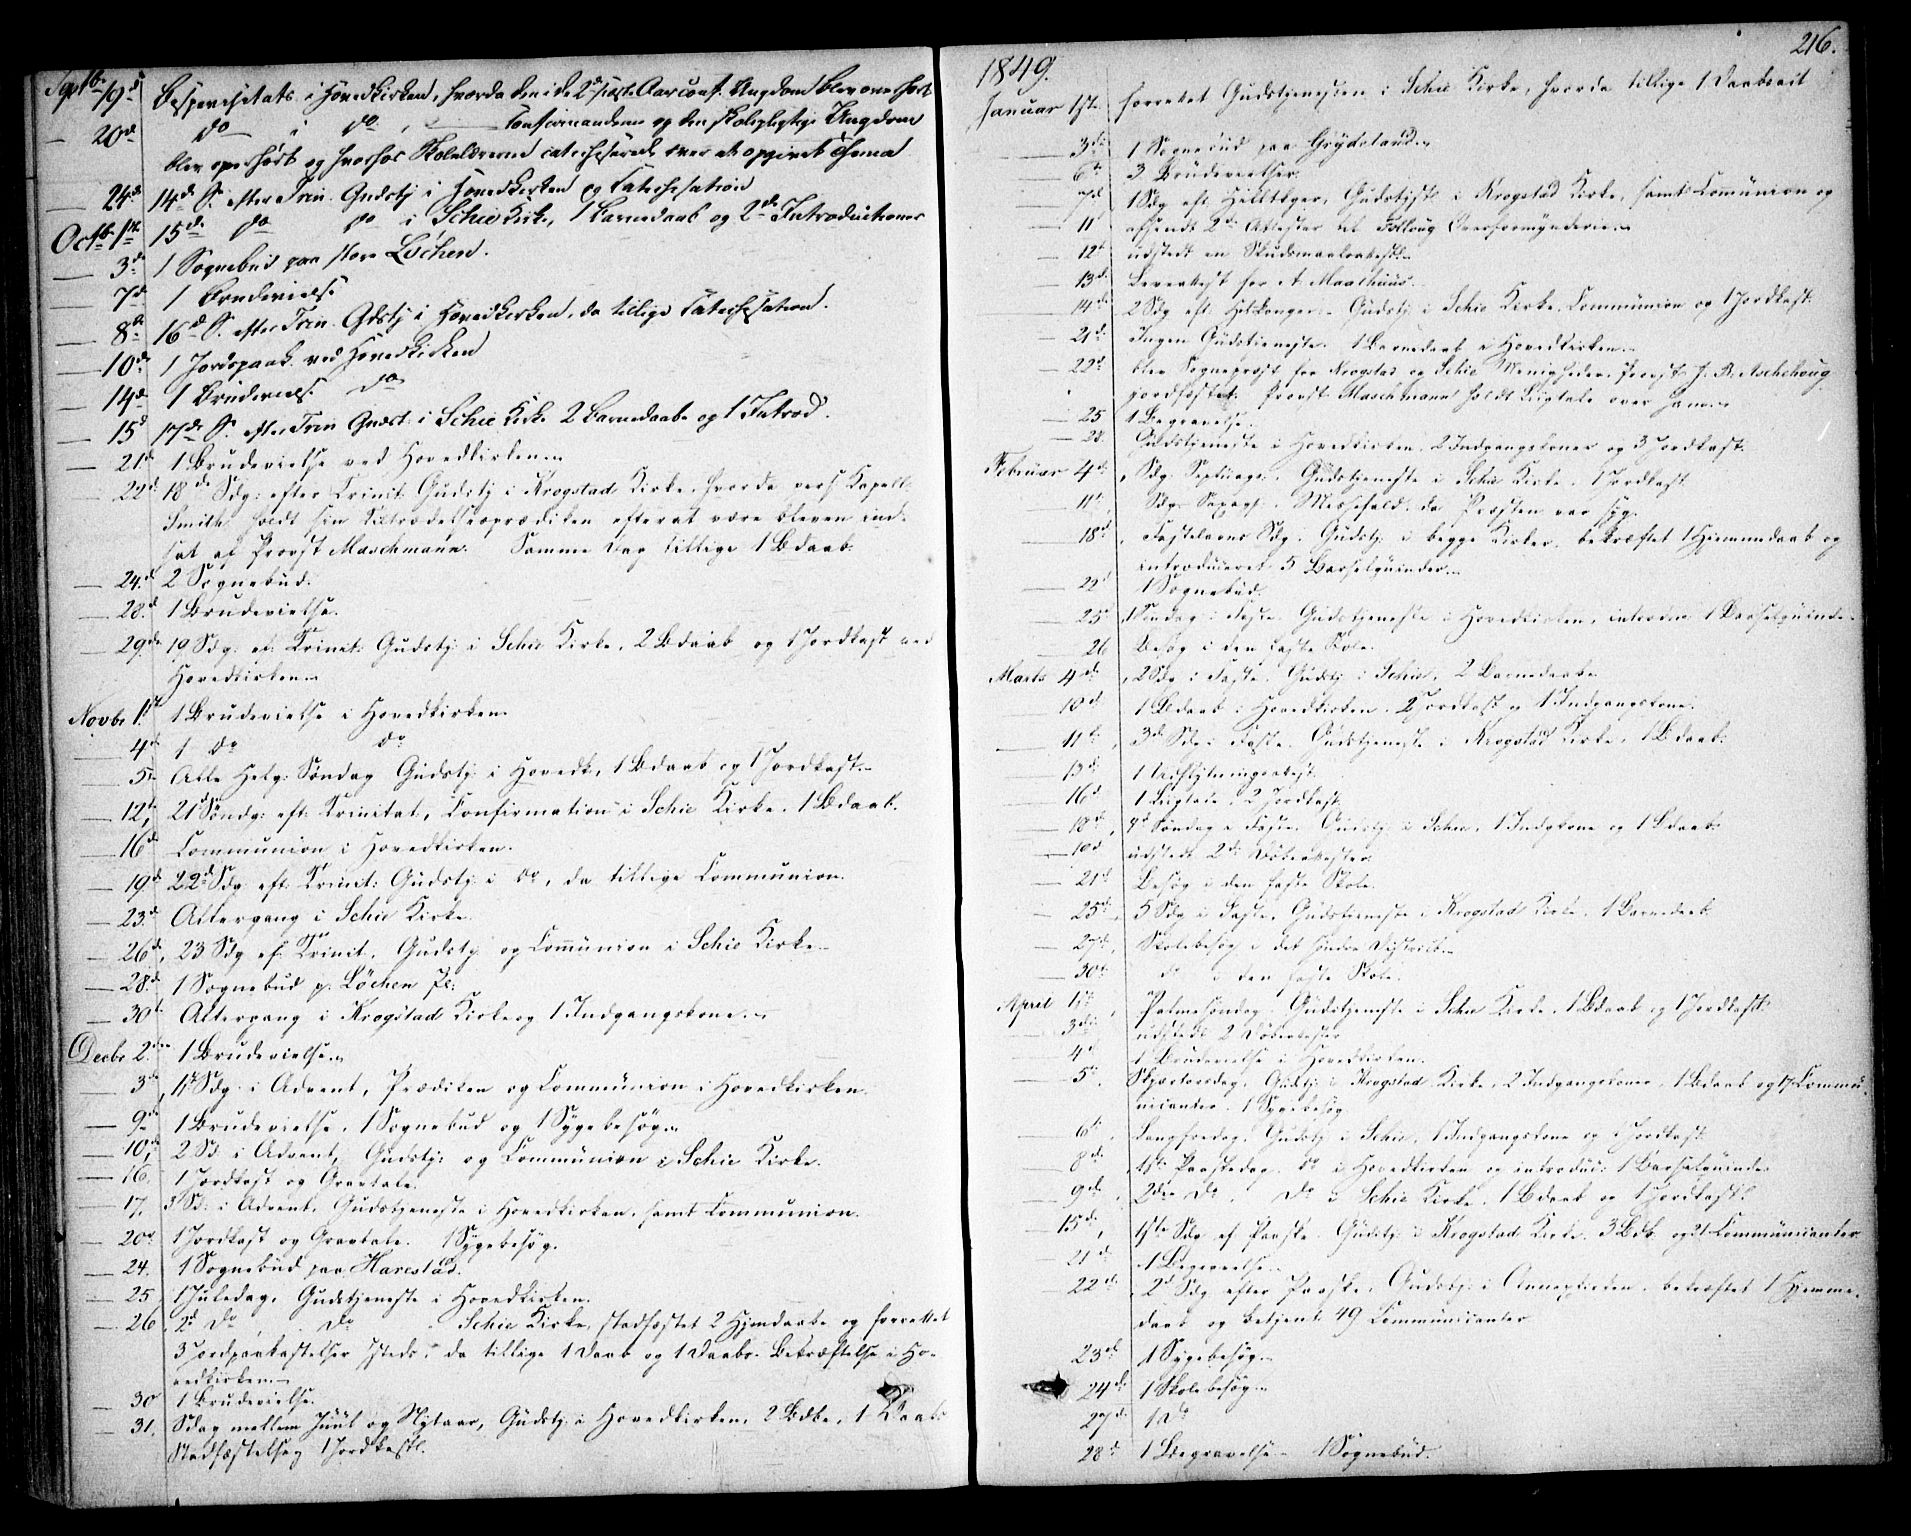 Septb. 19d Bispevisitats i Hovedkirken, hvorda den i de 2de sidste Aar conf. Ungdom blev overhørt
— 20de do i do Confirmanderne og den skolepligtige Ungdom
blev overhørt og hvorhos Skolelærerne catechiserede over et opgivet Thema
— 24de 14de S. efter Trin. Gudstj i Hovedkirken og Catechisation
Octb. 1ste 15de do do i Schie Kirke, 1 Barnedaab og 2de Introductioner
— 3de 1 Sognebud paa store Løchen.
— 7de 1 Brudevielse
— 8de 16de S. efter Trin. Gdstj i Hovedkirken, da tillige Catechisation.
— 10de 1 Jordspaak. ved Hovedkirken
— 14de 1 Brudeviels. do
— 15d 17de S. efter Trin Gudst: i Schie Kirke 2 Barnedaabe og 1 Introd.
— 21de 1 Brudevielse ved Hovedkirken.
— 22de 18de Sdg: efter Trinit: Gudstj i Krogstad Kirke, hvorda pers. Kapell.
Smith holdt sin Tiltrædelsesprædiken efterat være bleven ind-
sat af Provst Maschmann. Samme Dag tillige 1 Bdaab.
— 24.d 2 Sognebud.
— 28.d 1 Brudevielse.
— 29de 19 Sdg. ef: Trinit: Gudstj: i Schie Kirke, 2 Bdaab og 1 Jordkast ved
Hovedkirken.
Novbr 1.st 1 Brudevielse i Hovedkirken.
— 4de 1 do do
— 5te Alle Helg: Søndag Gudstj: i Hovedk, 1 Bdaab og 1 Jordkast.
— 12te, 21d Søndg: eft: Trinitat, Confirmation i Schie Kirke. 1 Bdaab.
— 16de Communion i Hovedkirken.
— 19.d 22de Sdg eft: Trinit: Gudstj: i do, da tillige Communion.
— 23.d Altergang i Schie Kirke.
— 26de, 23 Sdg ef: Trinit. Gudstj: og Communion i Schie Kirke
— 28de 1 Sognebud p. Løchen Pl:
— 30te Altergang i Krogstad Kirke og 1 Indgangskone.
Decbr 2.den 1 Brudevielse.
— 3de, 1ste Sdg: i Advent, Prædiken og Communion i Hovedkirken.
— 9de 1 Brudevielse. 1 Sognebud og 1 Sygebesøg.
— 10de, 2 Sd: i Advent, Gudstj: og Communion i Schie Kirke.
— 16. 1 Jordkast og Gravtale.
— 17, 3 Sd: i Advent, Gudstjeneste i Hovedkirken, samt Communion.
— 20de 1 Jordkast og Gravtale. 1 Sygebesøg.
— 24. 1 Sognebud paa Harestad.
— 25 1 Juledag, Gudstjeneste i Hovedkirken.
— 26, 2d Do Do Schie Kirke, stadfæstet 2 Hjmdaabe og forrettet
3 Jordpaakastelser Isteds, da tillige 1 Daab og 1 Daabs-Bekræftelse i Ho-
vedkirken.
— 30 1 Brudevielse.
— 31. Sdag mellem Juul og Nytaar, Gudstj: i Hovedkirken, 2 Bdbe, 1 Daabs
Stadfæstelse og 1 Jordkast.
216.
1849.
Januar 1ste forrettet Gudstjenesten i Schie Kirke, hvorda tillige 1 Daabsact
— 3de 1 Sognebud paa Grydeland.
— 6te 3 Brudevielser.
— 7de 1 Sdg eft Helltkger, Gudstjst: i Krogstad Kirke, samt Communion og
— 11 afsendt 2de Attester til Folloug Overformynderie.
— 12te udstedt en Skudsmaalsattest.
— 13de Leveattest for A. Maschius.
— 14de 2 Sdg eft. Hel3konger. Gudstj i Schie Kirke, Communion og 1 Jordkast.
— 21de Ingen Gudstjeneste. 1 Barnedaab i Hovedkirken.
— 22d blev Sognepræst for Krogstad og Schie Menigheder, Provst J. R. Aschehoug
jordfæstet. Provst Maschmann holdt Liigtale over ham.
— 25 1 Begravelse.
— 28. Gudstjeneste i Hovedkirken. 2 Indgangskoner og 3 Jordkast.
Februar 4de, Sdg. Septuags: Gudstjeneste i Schie Kirke. 1 Jordkast
— 11te Sdgs Sexags: Messefald, da Præsten var syg.
— 18de, Fastelavns Sdg. Gudstj: i begge Kirker, bekræftet 1 Hjemmedaab og
introduceret 5 Barselquinder.
— 22d 1 Sognebud.
— 25de, 1 Søndag i Faste, Gudstjeneste i Hovedkirken, introdm 1 Barselquinde.
— 26 Besøg i den faste Skole.
Marts 4de, 2 Sdg i Faste. Gudstj: i Schie, 2 Barnedaabe
— 10de 1 Bdaab i Hovedkirken. 2 Jordkast og 1 Indgangskone.
— 11te, 3de Sdg i Faste. Gudstjeneste i Krogstad Kirke, 1 Bdaab.
— 13de 1 Udflytningsattest.
— 16de 1 Liigtale, 2 Jordkast.
— 18de, 4de Søndag i Faste. Gudstj: i Schie, 1 Indgkone og 1 Bdaab.
— 19d udstedt 2de Døbeattester.
— 21de Besøg i den faste Skole.
— 25de, 5 Sdg i Faste. Gudstjeneste i Krogstad Kirke. 1 Barnedaab.
— 27de, Skolebesøg i det søndre District.
— 30te do i den faste Skole.
April 1ste, Palmesøndag. Gudstjeneste i Schie Kirke, 1 Bdaab og 1 Jordkast.
— 3die udstedt 2 Døbeattester
— 4de 1 Brudevielse i Hovedkirken.
— 5te, Skjærtorsdag, Gudstj: i Krogstad Kirke, 2 Indgangskoner, 1 Bdaab og 17 Commu-
nicanter. 1 Sygebesøg
— 6te, Langfredag, Gudstj: i Schie, 1 Indgangskone og 1 Jordkast.
— 8de, 1ste Paaskedag. do i Hovedkirken og introduc: 1 Barselquinde.
— 9de, 2den Do. Do i Schie Kirke. 1 Bdaab og 1 Jordkast.
— 15de, 1ste Sdg ef Paaske. Gudstj: i Krogstad Kirke. 3 Bdb og 21 Communicanter
— 21de 1 Begravelse.
— 22de, 2d Sdg efter Paaske, Gudstj: i Annexkirken, bekræftet 1 Hjemme-
daab og betjent 49 Communicanter
— 23de 1 Sygebesøg.
— 24de 1 Skolebesøg.
— 27de 1 Do
— 28de 1 Begravelse 1 Sognebud.